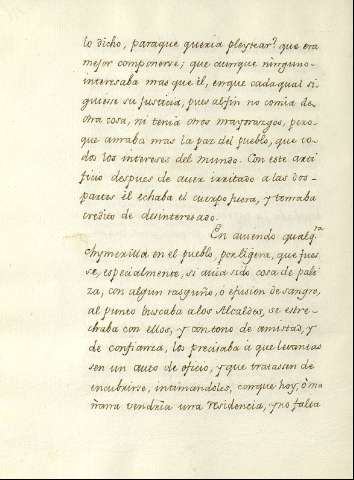 lo dicho, paraque queria pleytear? que era
mejor componerse; que aunque ninguno
interesaba mas que èl, enque cada qual si
guiese su justicia, pues alfin no comia de
otra cosa, ni tenia otros mayorazgos, pero
que amaba mas la paz del pueblo, que to
dos los intereses del mundo. Con este arti
ficio despues de aver irritado a las dos
partes èl echaba el cuerpo fuera, y tomaba
credito de desinteresado.
En aviendo qualqra
chymerilla en el pueblo, por ligera, que fue
se, especialmente, si avia sido cosa de pali
za, con algun rasguño, ò efusion de sangre,
al punto buscaba alos Alcaldes, se estre
chaba con ellos, y con tono de amistad, y
de confianza, los precisaba à que levantas
sen un auto de oficio, y que tratasen de
encubrirse, intimandoles, conque hoy, ò ma
ñana vendria una residencia, y no falta